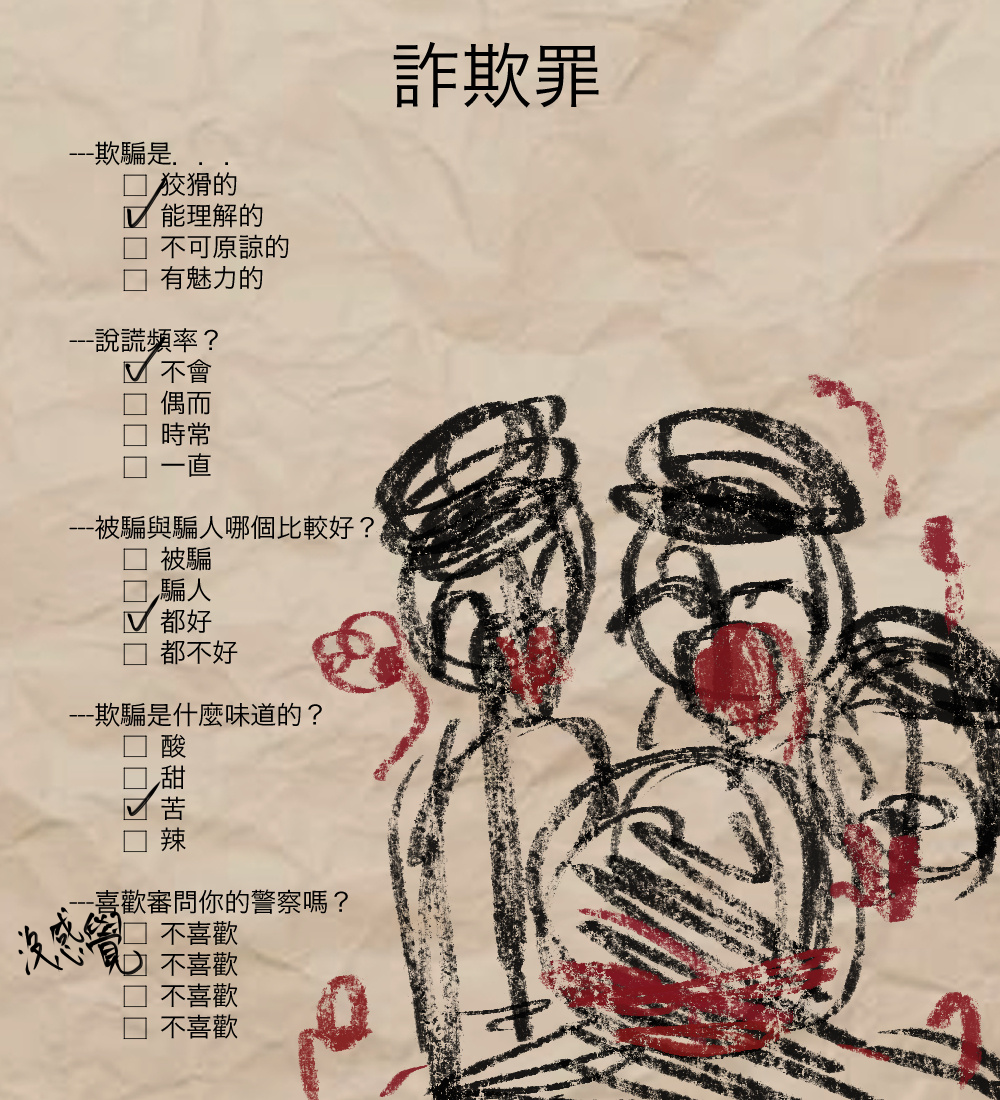 詐欺罪
---欺騙是. . .
狡猾的
能理解的
不可原諒的
有魅力的
---說謊頻率？
不會
偶而
時常
一直
---被騙與騙人哪個比較好？
被騙
騙人
都好
都不好
---欺騙是什麼味道的？
酸
甜
苦
辣
---喜歡審問你的警察嗎？
沒感覺
不喜歡
不喜歡
不喜歡
不喜歡